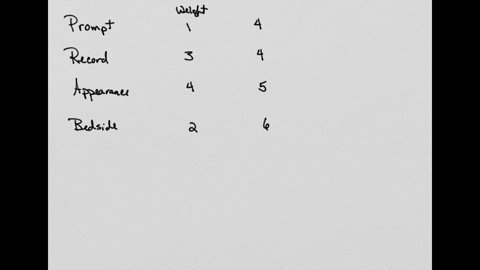 Weight
Prompt 1 4
Record 3 4
Appearance 4 5
Bedside 2 6